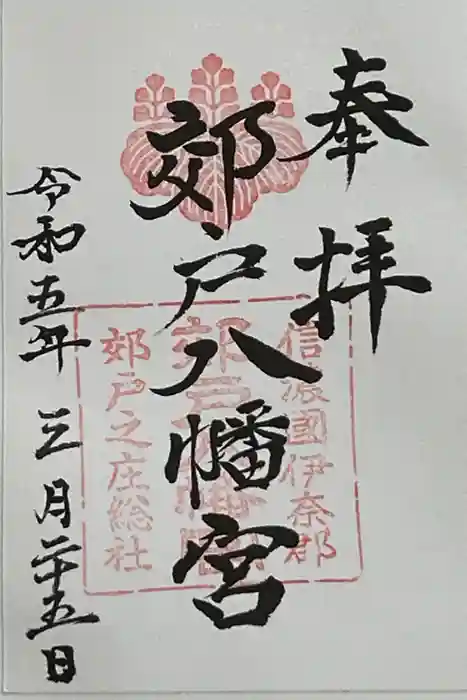 奉拝
郊戸八幡宮
信濃國伊奈郡
郊戸八幡宮
郊戸之庄総社
令和五年三月二十五日